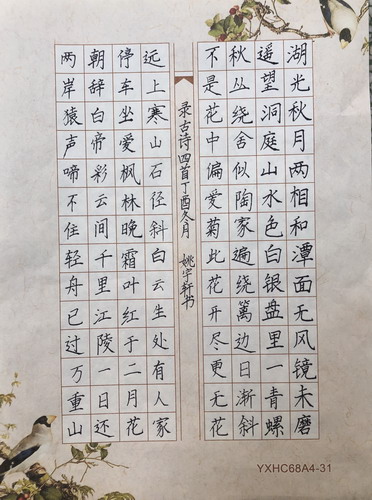 湖光秋月两相和潭面无风镜未磨
遥望洞庭山水色白银盘里一青螺
秋丛绕舍似陶家遍绕篱边日渐斜
不是花中偏爱菊此花开尽更无花
录古诗四首丁酉冬月 姚宇轩书
远上寒山石径斜白云生处有人家
停车坐爱枫林晚霜叶红于二月花
朝辞白帝彩云间千里江陵一日还
两岸猿声啼不住轻舟已过万重山
YXHC68A4-31